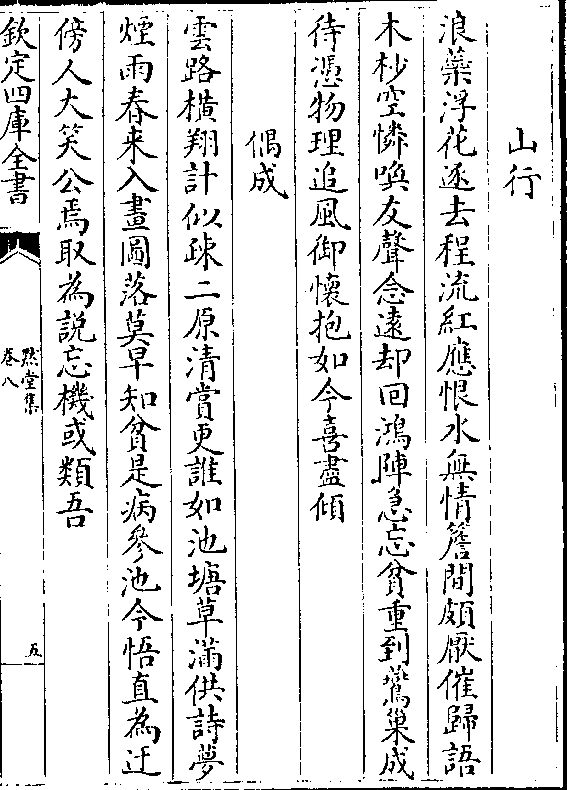 山行
浪蘂浮花逐去程流紅應恨水無情簷間頗厭催歸語
木杪空憐喚友聲念遠却回鴻陣急忘貧重到鷰巢成
待憑物理追風御懷抱如今喜盡傾
偶成
雲路横翔計似疎二原清賞更誰如池塘草滿供詩夢
煙雨春来入畫圖落莫早知貧是病參池今悟直為迂
傍人大笑公焉取為說忘機或類吾
欽定四庫全書
黙堂集
卷八
五